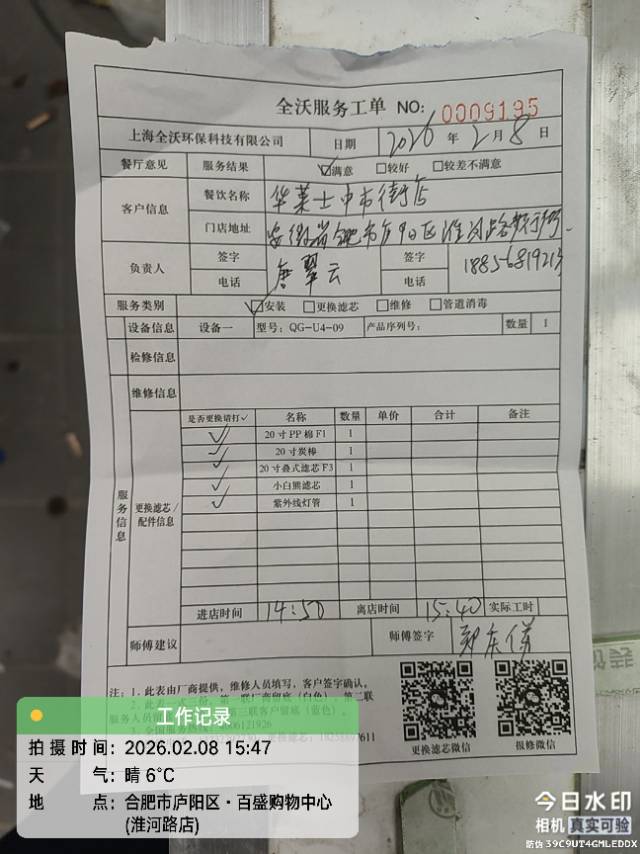 全沃服务工单 NO: 0009195
上海全沃环保科技有限公司 日期 2026年2月8日
餐厅意见 服务结果 ☑满意 □较好 □较差不满意
客户信息 餐饮名称 华莱士中市街店
门店地址 安徽省合肥市庐阳区淮河路步行街
负责人 签字 唐翠云 签字
电话 电话 18856819213
服务类别 ☑安装 □更换滤芯 □维修 □管道消毒
设备信息 设备一 型号: QG-U4-09 产品序列号: 数量 1
检修信息
维修信息
服务信息
更换滤芯/配件信息
是否更换请打✓ 名称 数量 单价 合计 备注
✓ 20寸PP棉F1 1
✓ 20寸炭棒 1
✓ 20寸叠式滤芯F3 1
✓ 小白熊滤芯 1
✓ 紫外线灯管 1
进店时间 14:50 离店时间 15:40 实际工时
师傅建议 师傅签字
注: 1、此表由厂商提供，维修人员填写，客户签字确认。
更换滤芯微信 报修微信
工作记录
拍摄时间: 2026.02.08 15:47
天 气: 晴 6°C
地 点: 合肥市庐阳区·百盛购物中心
(淮河路店)
今日水印
相机 真实可验
防伪 39C9UT4GMLEDDX